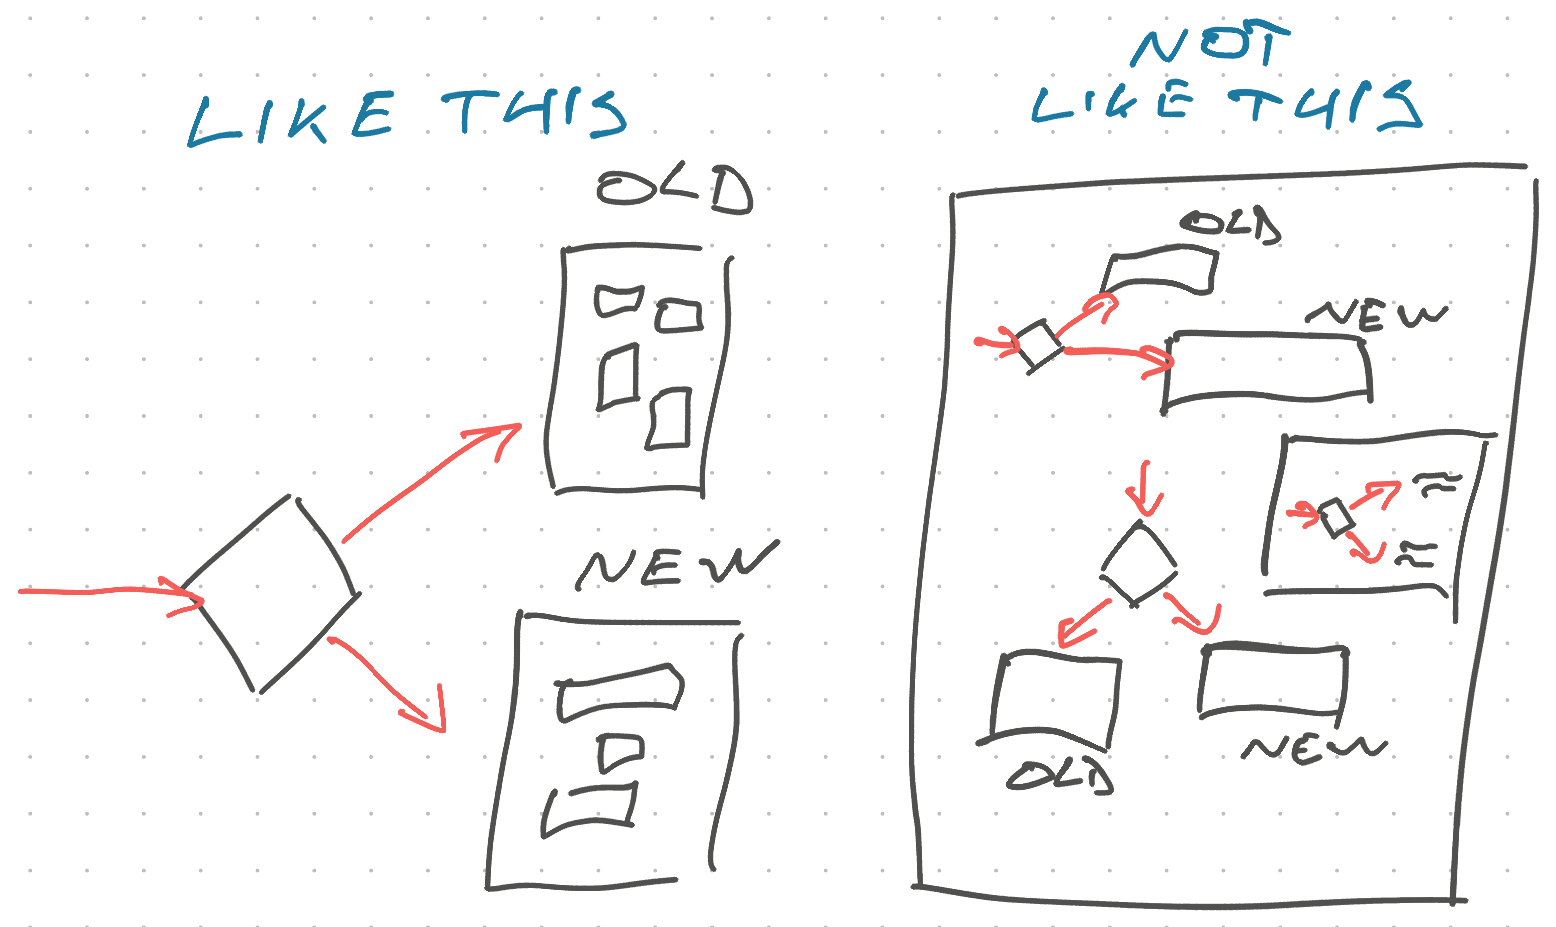 LIKE THIS
OLD
NEW
NOT
LIKE THIS
OLD
NEW
OLD
NEW